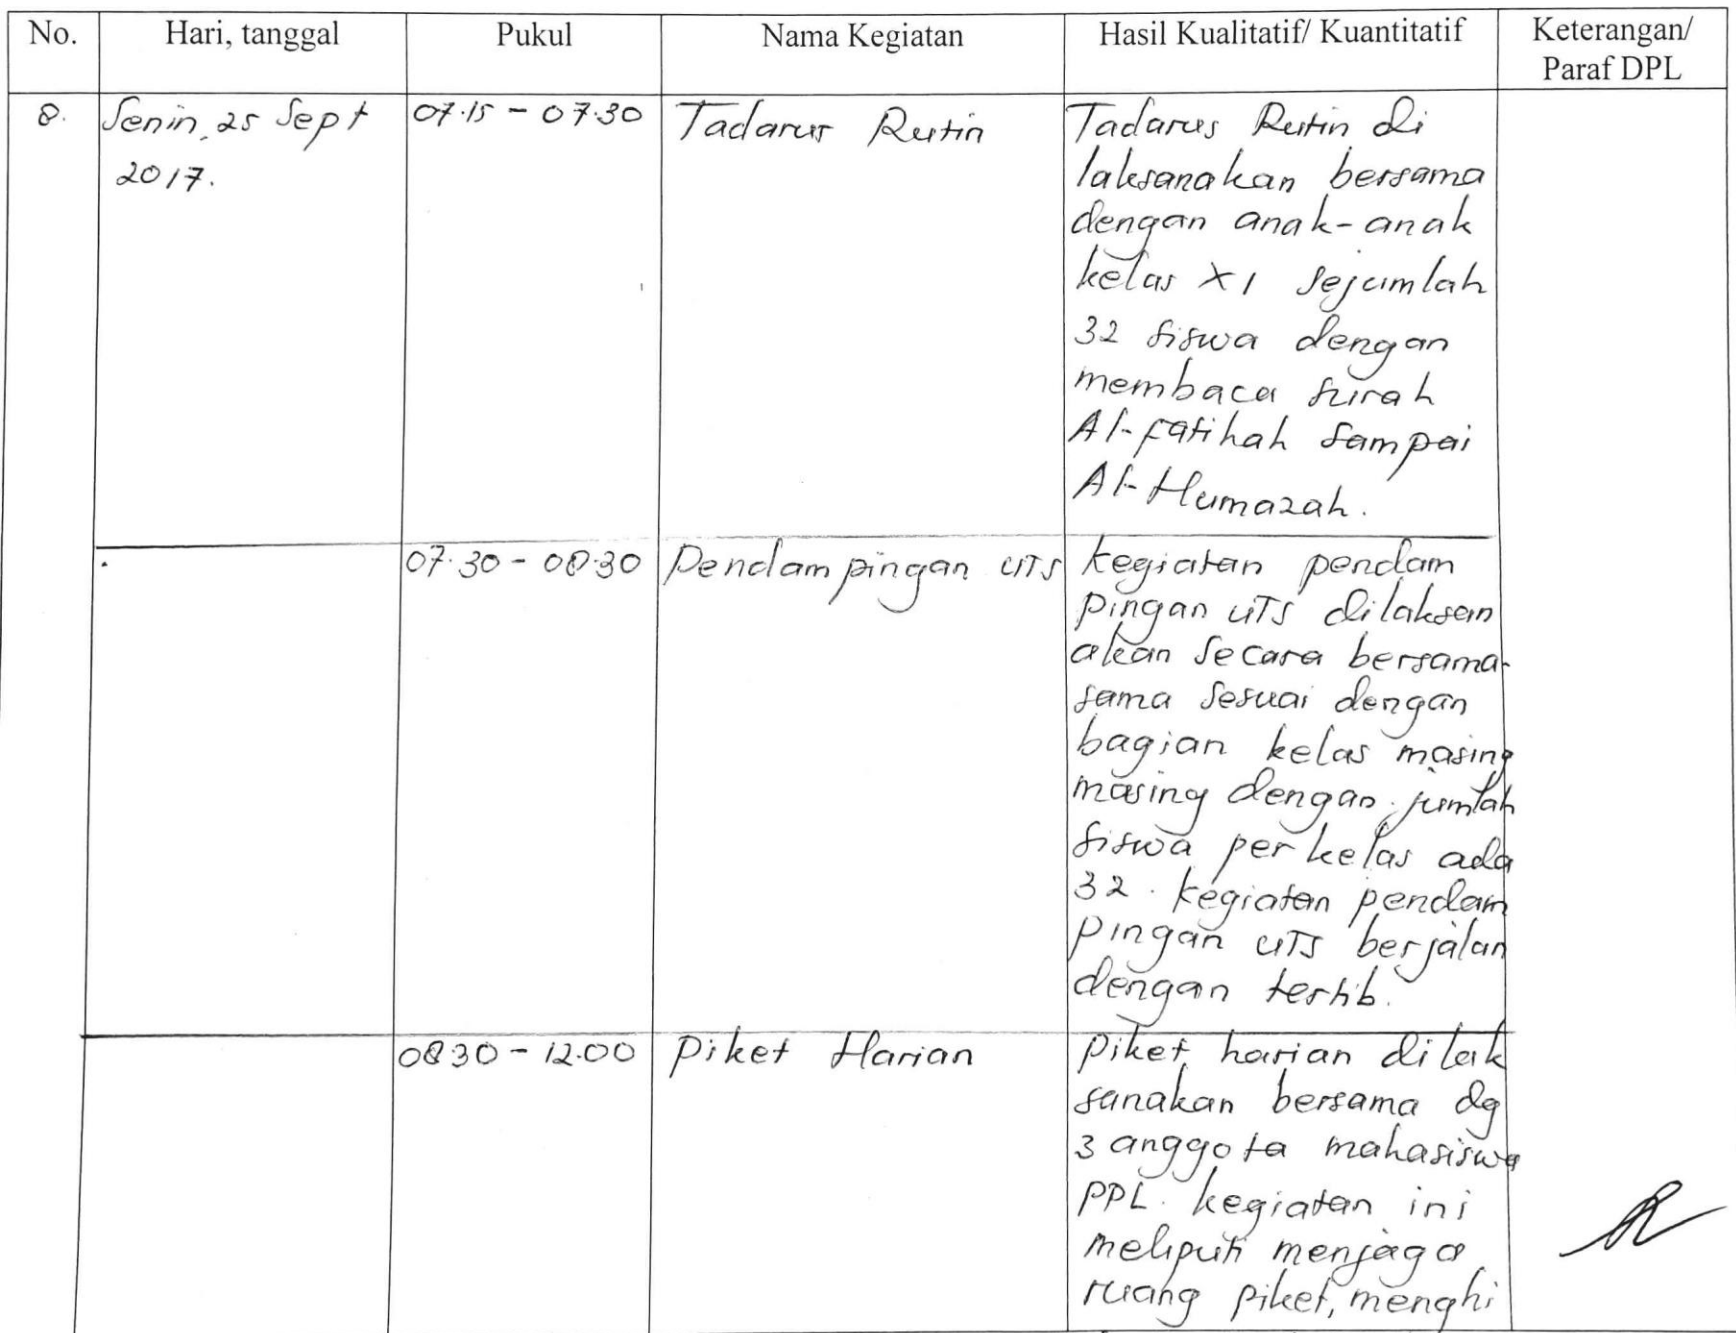 No. Hari, tanggal Pukul Nama Kegiatan Hasil Kualitatif/ Kuantitatif Keterangan/
Paraf DPL
8. Senin, 25 Sept 07.15 - 07.30 Tadarus Rutin Tadarus Rutin di
2017. laksanakan bersama
dengan anak-anak
kelas XI sejumlah
32 siswa dengan
membaca surah
Al-fatihah sampai
Al-Humazah.
07.30 - 08.30 Pendampingan UTS kegiatan pendam
pingan UTS dilaksan
akan secara bersama-
sama sesuai dengan
bagian kelas masing
masing dengan jumlah
siswa perkelas ada
32. kegiatan pendam
pingan UTS berjalan
dengan tertib.
08.30 - 12.00 Piket Harian Piket harian dilak
sanakan bersama dg
3 anggota mahasiswa
PPL. kegiatan ini
meliputi menjaga
ruang piket, menghi